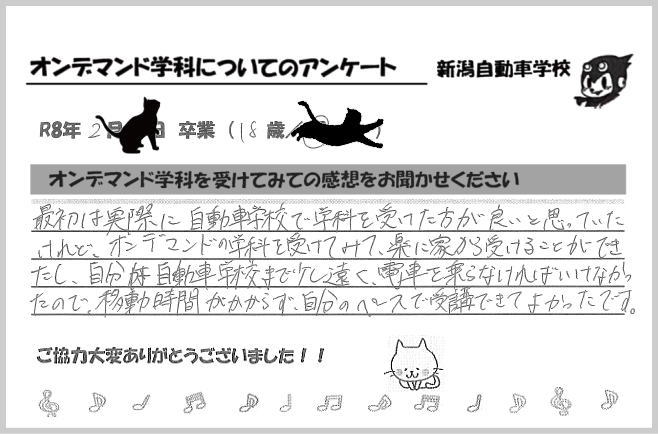 オンデマンド学科についてのアンケート 新潟自動車学校
R8年 2月 日 卒業 (18 歳/ )
オンデマンド学科を受けてみての感想をお聞かせください
最初は実際に自動車学校で学科を受けた方が良いと思っていた
けれど、オンデマンドの学科を受けてみて、楽に家から受けることができ
たし、自分は自動車学校まで少し遠く、電車を乗らなければいけなかっ
たので、移動時間がかからず、自分のペースで受講できてよかったです。
ご協力大変ありがとうございました!!